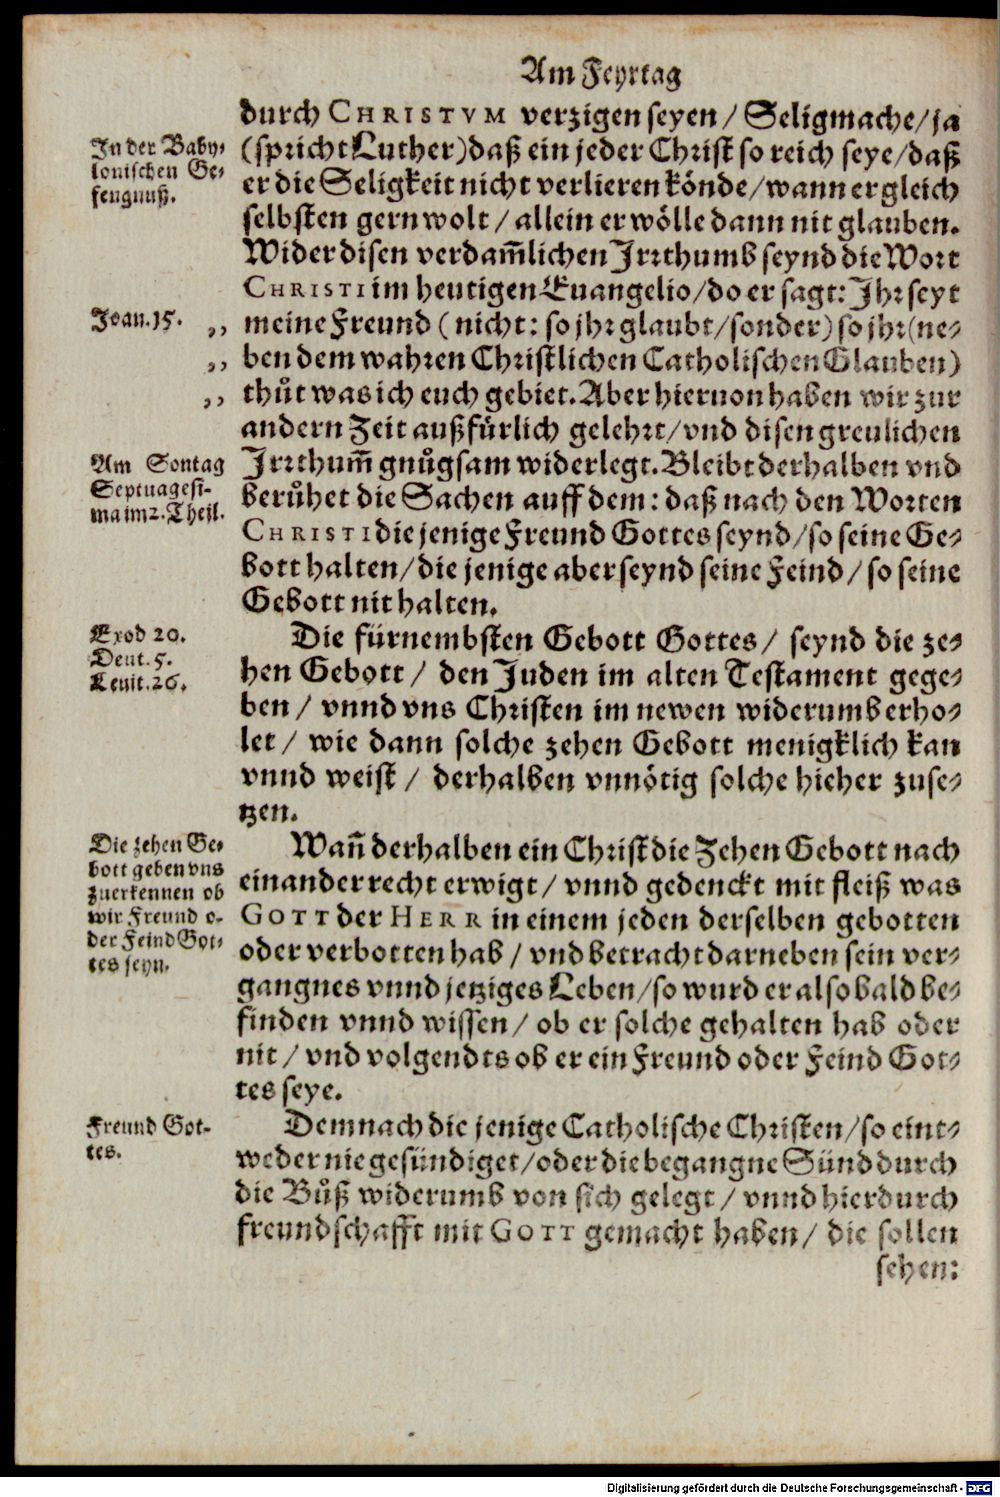 Am Feyrtag
durch CHRISTVM verzigen seyen / Seligmache / ja
(spricht Luther) daß ein jeder Christ so reich seye / daß
er die Seligkeit nicht verlieren könde / wann er gleich
selbsten gern wolt / allein er wölle dann nit glauben.
Wider disen verdam̃lichen Irrthumb seynd die Wort
CHRISTI im heutigen Euangelio / do er sagt: Ihr seyt
meine Freund (nicht: so jhr glaubt / sonder) so jhr (ne-
ben dem wahren Christlichen Catholischen Glauben)
thůt was ich euch gebiet. Aber hieruon haben wir zur
andern Zeit außfürlich gelehrt / vnd disen greulichen
Irrthum̃ gnůgsam widerlegt. Bleibt derhalben vnd
berůhet die Sachen auff dem: daß nach den Worten
CHRISTI die jenige Freund Gottes seynd / so seine Ge-
bott halten / die jenige aber seynd seine Feind / so seine
Gebott nit halten.
Die fürnembsten Gebott Gottes / seynd die ze-
hen Gebott / den Juden im alten Testament gege-
ben / vnnd vns Christen im newen widerumb erho-
let / wie dann solche zehen Gebott menigklich kan
vnnd weist / derhalben vnnötig solche hieher zuse-
tzen.
Wañ derhalben ein Christ die Zehen Gebott nach
einander recht erwigt / vnnd gedenckt mit fleiß was
GOTT der HERR in einem jeden derselben gebotten
oder verbotten hab / vnd betracht darneben sein ver-
gangnes vnnd jetziges Leben / so wurd er also bald be-
finden vnnd wissen / ob er solche gehalten hab oder
nit / vnd volgendts ob er ein Freund oder Feind Got-
tes seye.
Demnach die jenige Catholische Christen / so eint-
weder nie gesündiget / oder die begangne Sünd durch
die Bůß widerumb von sich gelegt / vnnd hierdurch
freundschafft mit GOTT gemacht haben / die sollen
sehen:
In der Baby-
lonischen Ge-
fengnuß.
Ioan. 15. ,,
,,
,,
Am Sontag
Septuagesi-
ma im 2. Theil.
Exod 20.
Deut. 5.
Leuit. 26.
Die zehen Ge-
bott geben vns
zuerkennen ob
wir Freund o-
der Feind Got-
tes seyn.
Freund Got-
tes.
Digitalisierung gefördert durch die Deutsche Forschungsgemeinschaft - DFG